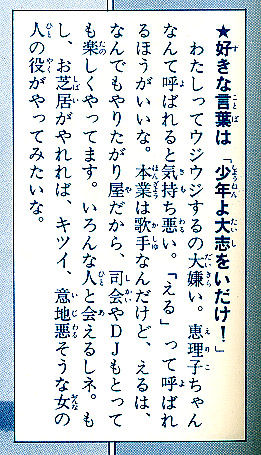 ★好きな言葉は「少年よ大志をいだけ！」
わたしってウジウジするの大嫌い。恵理子ちゃん
なんて呼ばれると気持ち悪い。「える」って呼ばれ
るほうがいいな。本業は歌手なんだけど、えるは、
なんでもやりたがり屋だから、司会やDJもとって
も楽しくやってます。いろんな人と会えるしネ。も
し、お芝居がやれれば、キツイ、意地悪そうな女の
人の役がやってみたいな。